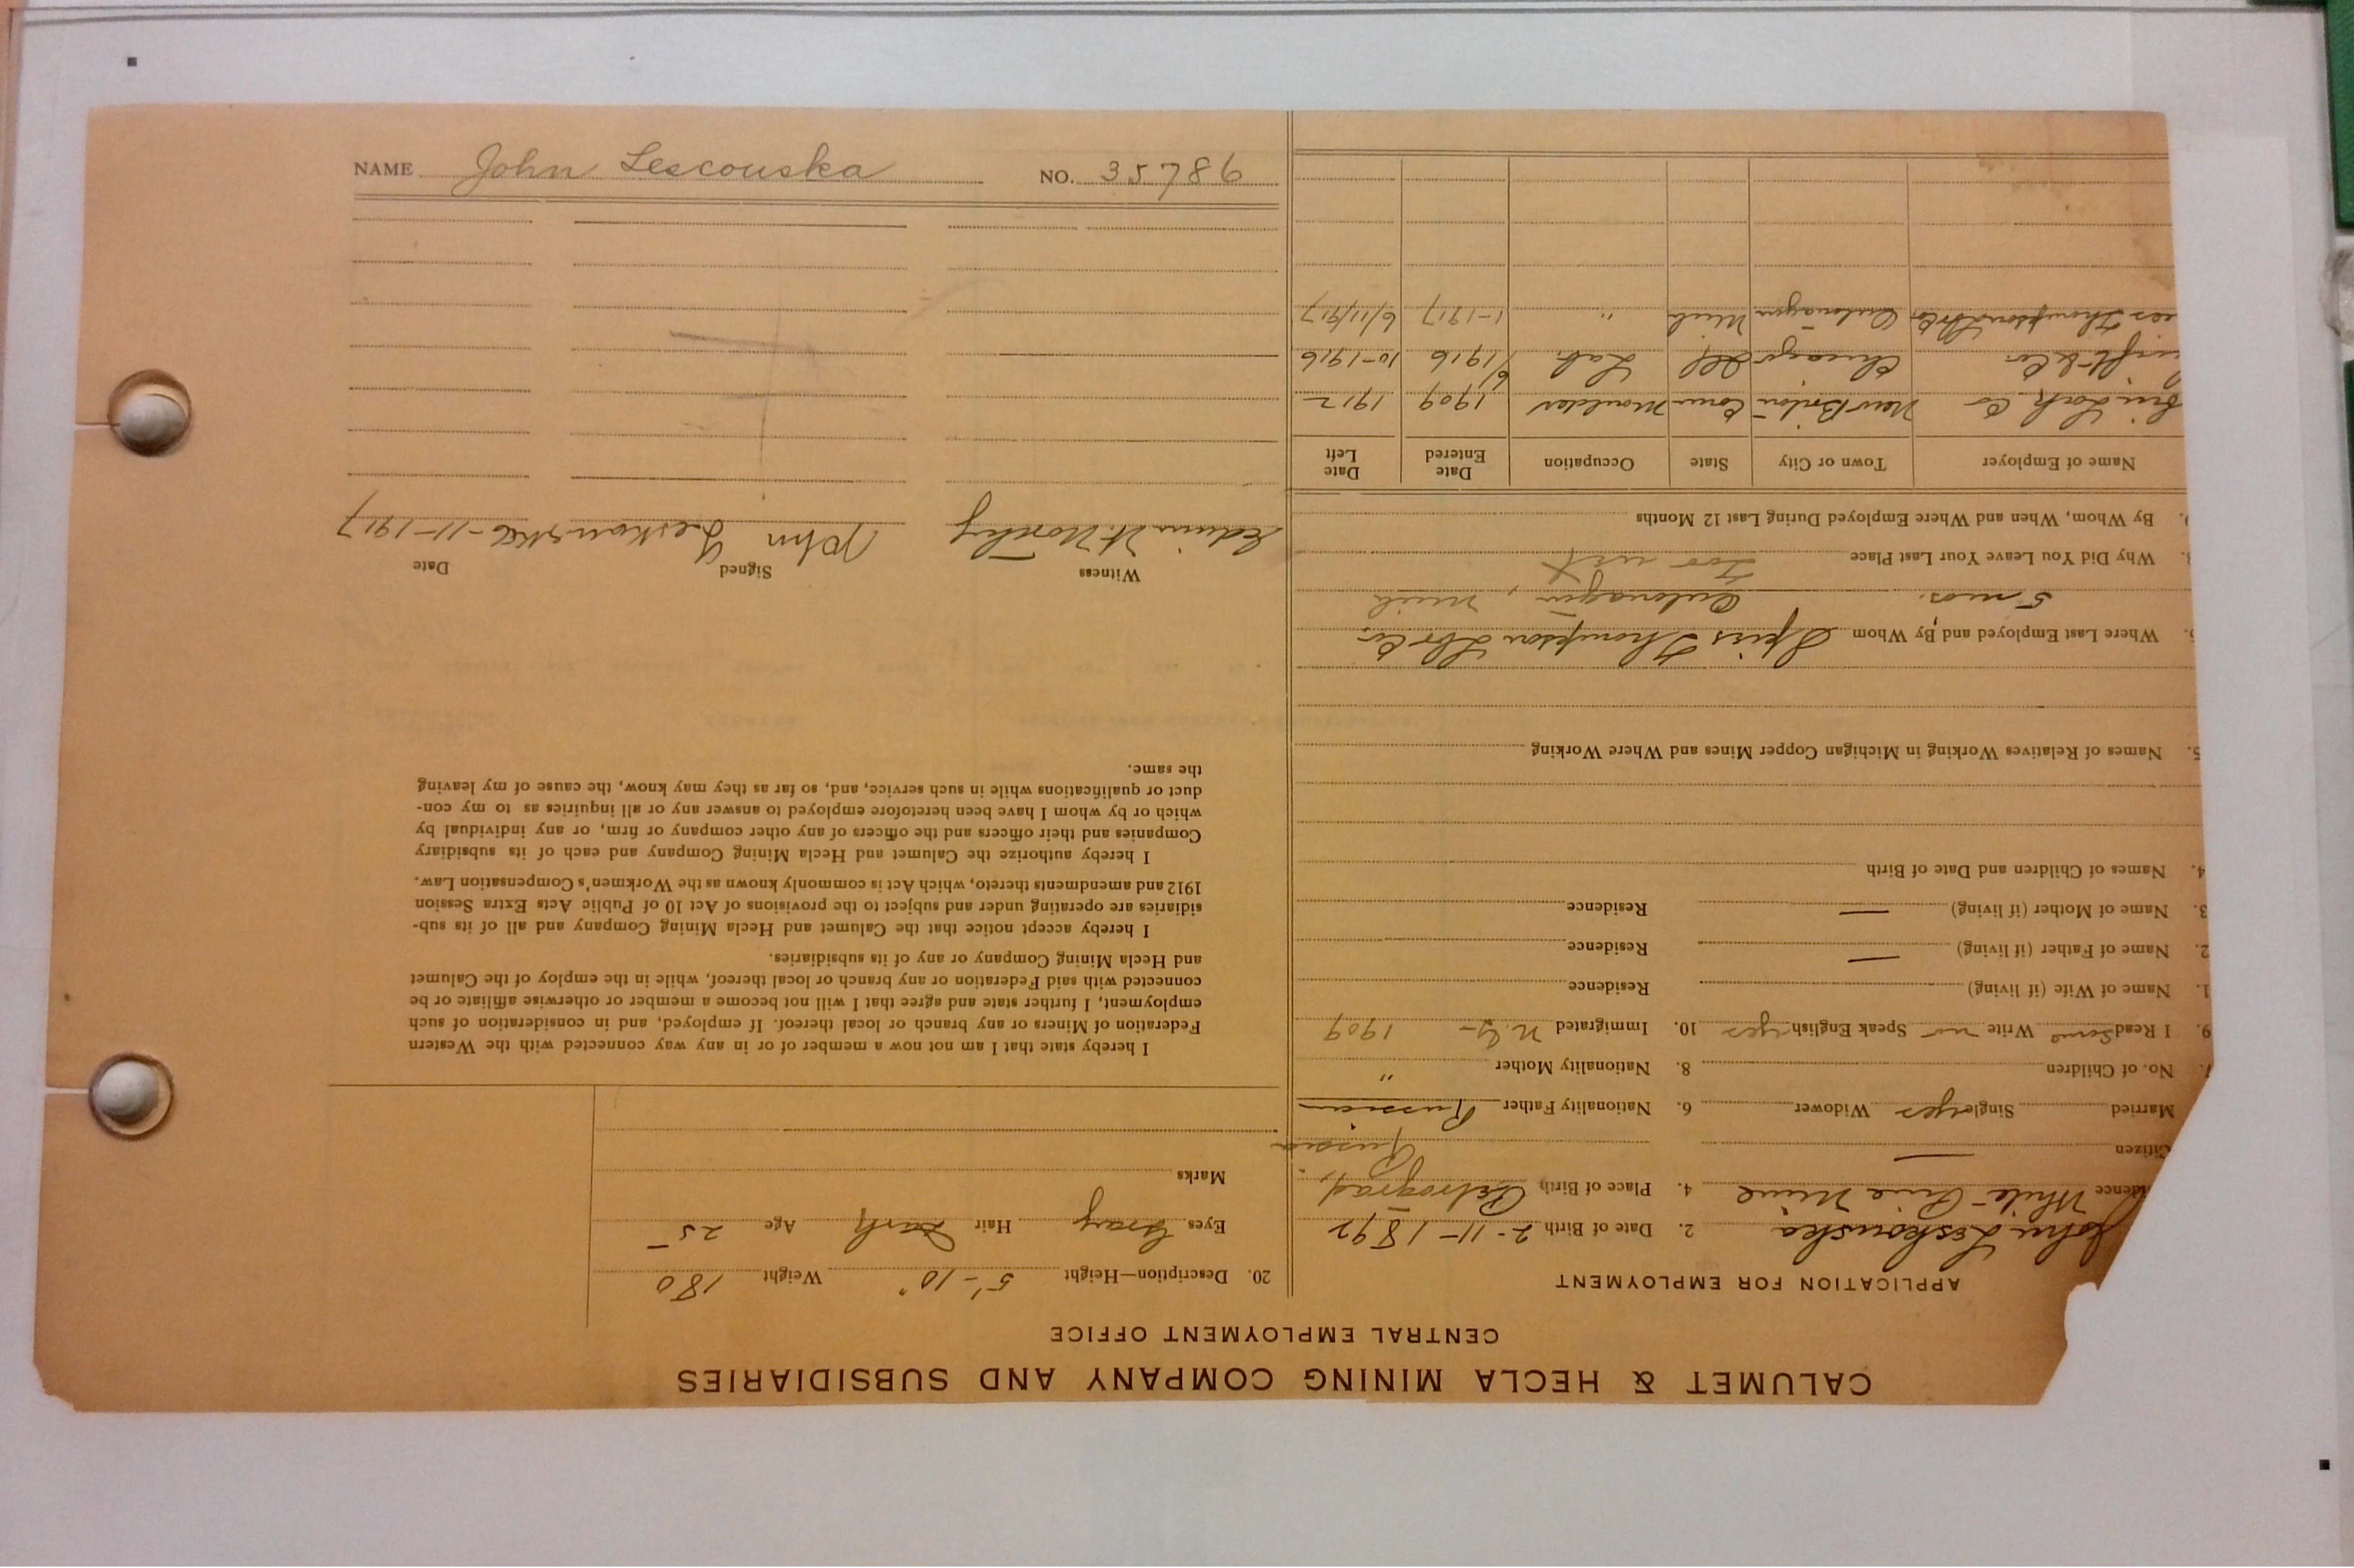 NAME John Lescouska NO. 35786
CALUMET & HECLA MINING COMPANY AND SUBSIDIARIES
CENTRAL EMPLOYMENT OFFICE
APPLICATION FOR EMPLOYMENT
John Leskouska 2. Date of Birth 2-11-1892
idence White Pine Mine 4. Place of Birth Petrograd,
Citizen — Russia
Married Single yes Widower 6. Nationality Father Russian
7. No. of Children 8. Nationality Mother "
9. I Read Some Write no Speak English yes 10. Immigrated N.Y. 1909
1. Name of Wife (if living) Residence
2. Name of Father (if living) — Residence
3. Name of Mother (if living) — Residence
4. Names of Children and Date of Birth
5. Names of Relatives Working in Michigan Copper Mines and Where Working
Where Last Employed and By Whom Spies Thompson Lbr Co.
5 mos. Ontonagon, Mich
Why Did You Leave Your Last Place Too wet
By Whom, When and Where Employed During Last 12 Months
Name of Employer Town or City State Occupation Date Entered Date Left
Lock Co New Britain Conn Moulder 1909 1912
Swift & Co Chicago Ill Lab. 6/1916 10-1916
Thompson Lbr Co Ontonagon Mich " 1-1917 6/11/917
20. Description—Height 5'-10" Weight 180
Eyes Gray Hair Dark Age 25
Marks
I hereby state that I am not now a member of or in any way connected with the Western
Federation of Miners or any branch or local thereof. If employed, and in consideration of such
employment, I further state and agree that I will not become a member or otherwise affiliate or be
connected with said Federation or any branch or local thereof, while in the employ of the Calumet
and Hecla Mining Company or any of its subsidiaries.
I hereby accept notice that the Calumet and Hecla Mining Company and all of its sub-
sidiaries are operating under and subject to the provisions of Act 10 of Public Acts Extra Session
1912 and amendments thereto, which Act is commonly known as the Workmen's Compensation Law.
I hereby authorize the Calumet and Hecla Mining Company and each of its subsidiary
Companies and their officers and the officers of any other company or firm, or any individual by
which or by whom I have been heretofore employed to answer any or all inquiries as to my con-
duct or qualifications while in such service, and, so far as they may know, the cause of my leaving
the same.
Witness Signed Date
Edwin W. John Leskouska 6-11-1917